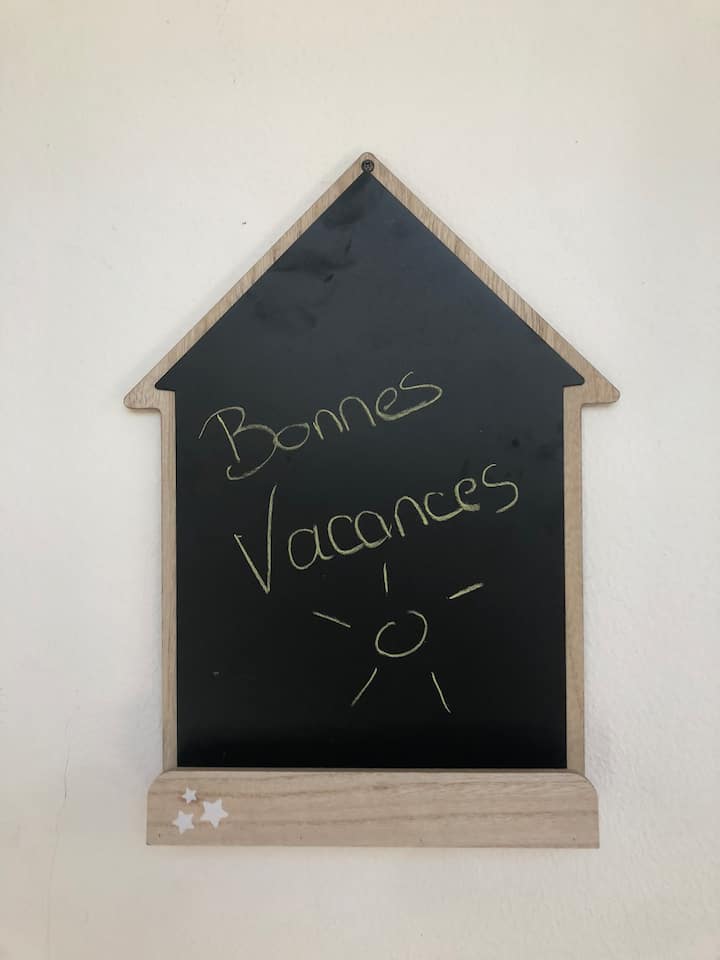 Bonnes
Vacances